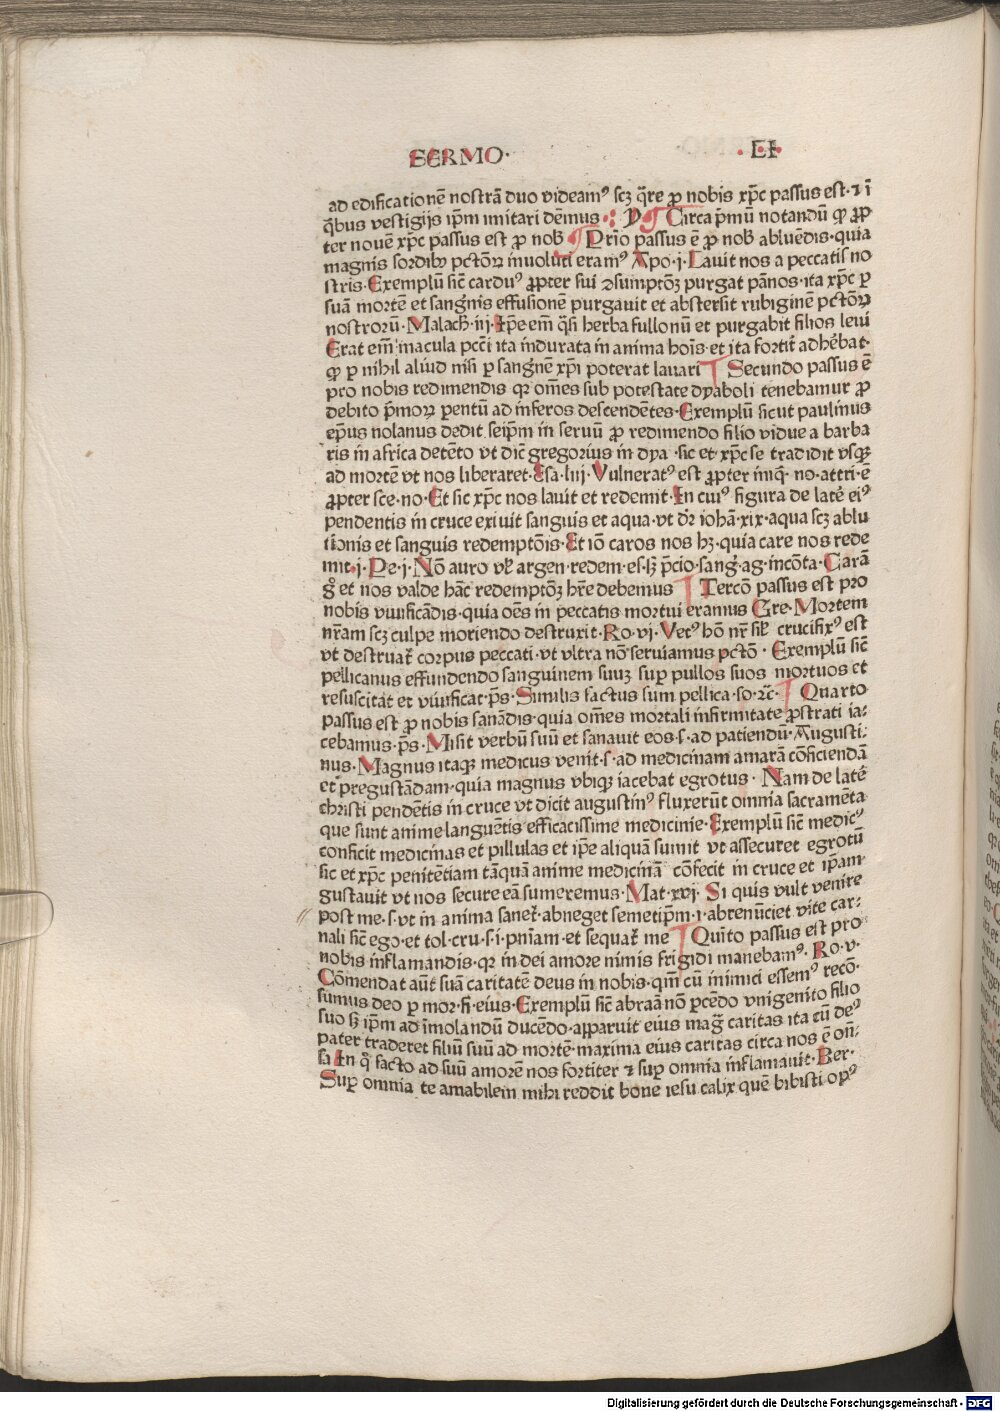 SERMO· ·LI·
ad edificationē nostrā duo videamꝰ scꝫ q̄re ꝓ nobis xp̄c passus est·⁊ ī
q̄bus vestigijs ip̄m imitari dēmus · Circa p̄mū notandū ꝙ ꝓp
ter nouē xp̄c passus est ꝓ nob̄ ¶ Prīo passus ē ꝓ nob̄ abluēdis·quia
magnis sordibꝰ pctōꝝ inuoluti eramꝰ Apo·j·Lauit nos a peccatis no
stris·Exemplū sic̄ carduꝰ ꝓpter sui ꝯsumptōꝫ purgat pānos·ita xp̄c ꝑ
suā mortē et sangnīs effusionē purgauit et abstersit rubiginē pctōꝝ
nostrorū·Malach̄·iij·Ip̄e em̄ q̄si herba fullonū et purgabit filios leui
Erat em̄ macula pcc̄i ita indurata in anima hoīs·et ita fortit̄ adhēbat·
ꝙ ꝑ nihil aliud nisi ꝑ sangnē xp̄i poterat lauari ¶ Secundo passus ē
pro nobis redimendis qꝛ om̄es sub potestate dyaboli tenebamur ꝓ
debito p̄moꝝ parentū ad inferos descendētes·Exemplū sicut paulinus
ep̄us nolanus dedit seip̄m in seruū ꝓ redimendo filio vidue a barba
ris in africa detēto vt dic̄ gregorius in dya·sic et xp̄c se tradidit vsqꝫ
ad mortē vt nos liberaret·Esa·liij·Vulneratꝰ est ꝓpter iniq̄·no·attri·ē
ꝓpter sce·no·Et sic xp̄c nos lauit et redemit·In cuiꝰ figura de latē eiꝰ
pendentis in cruce exiuit sanguis et aqua·vt dr̄ iohā·xix·aqua scꝫ ablu
tiōnis et sanguis redemptōis·Et iō caros nos hꝫ·quia care nos rede
mit·j·Pe·j·Nō auro vl̄ argen·redem·es·sꝫ p̄cio·sanḡ·ag·incōta·Carā
gͦ et nos valde hāc redemptōꝫ hr̄e debemus ¶ Tercō passus est pro
nobis viuificādis·quia oēs in peccatis mortui eramus Gre·Mortem
nr̄am scꝫ culpe moriendo destruxit·Ro·vj·Vetꝰ hō nr̄ sil̄ crucifixꝰ est
vt destruat̄ corpus peccati·vt vltra nō seruiamus pctō·Exemplū sic̄
pellicanus effundendo sanguinem suuꝫ suꝑ pullos suos mortuos et
resuscitat et viuificat·ps̄·Similis factus sum pellica·so·⁊c̄·¶ Quarto
passus est ꝓ nobis sanādis·quia om̄es mortali infirmitate ꝓstrati ia-
cebamus·ps̄·Misit verbū suū et sanauit eos·s·ad patiendū·Augusti:
nus·Magnus itaqꝫ medicus venit·s·ad medicinam amarā cōficiendā
et pregustādam·quia magnus vbiqꝫ iacebat egrotus·Nam de latē
christi pendētis in cruce vt dicit augustinꝰ fluxerūt omnia sacramēta
que sunt anime languētis efficacissime medicinie·Exemplū sic̄ medicꝰ
conficit medicinas et pillulas et ip̄e aliquā sumit vt assecuret egrotū
sic et xp̄c penitētiam tāquā anime medicinā cōfecit in cruce et ip̄am
gustauit vt nos secure eā sumeremus·Mat·xvj·Si quis vult venire
post me·s·vt in anima sanet̄·abneget semetip̄m·i·abrenūciet vite car-
nali sic̄ ego·et tol·cru·s·i·pn̄iam·et sequat̄ me ¶ Quīto passus est pro
nobis inflamandis·qꝛ in dei amore nimis frigidi manebamꝰ·Ro·v·
Cōmendat aūt suā caritatē deus in nobis·qm̄ cū inimici essemꝰ recō·
sumus deo ꝑ mor·fi·eius·Exemplū sic̄ abraā nō ꝑcēdo vnigenito filio
suo sꝫ ip̄m ad īmolandū ducēdo·apparuit eius maḡ caritas ita cū deꝰ
pater traderet filiū suū ad mortē·maxima eius caritas circa nos ē on̄:
sa In q̄ facto ad suū amorē nos fortiter ⁊ suꝑ omnia inflamauit·Ber·
Suꝑ omnia te amabilem mihi reddit bone iesu calix quē bibisti opꝰ
Digitalisierung gefördert durch die Deutsche Forschungsgemeinschaft - DFG